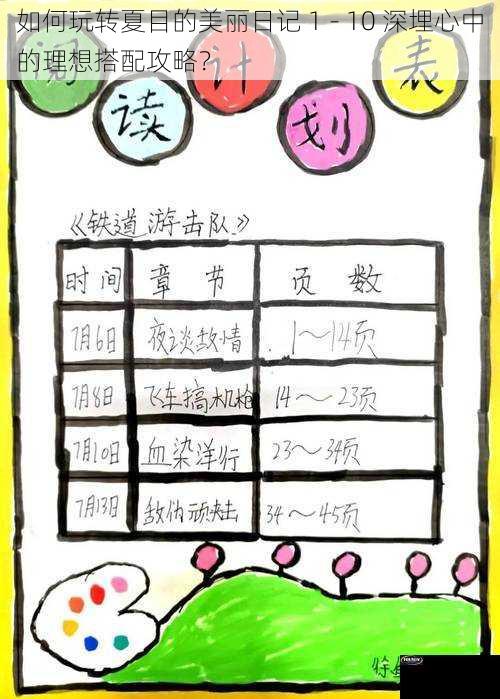 如何玩转夏目的美丽日记 1 - 10 深埋心中
的理想搭配攻略?
阅读计划表
《铁道游击队》
时间 章节 页数
7月6日 夜谈敌情 1～14页
7月8日 飞车搞机枪 14～23页
7月10日 血染洋行 23～34页
7月13日 敌伪顽夹击 34～45页
徐